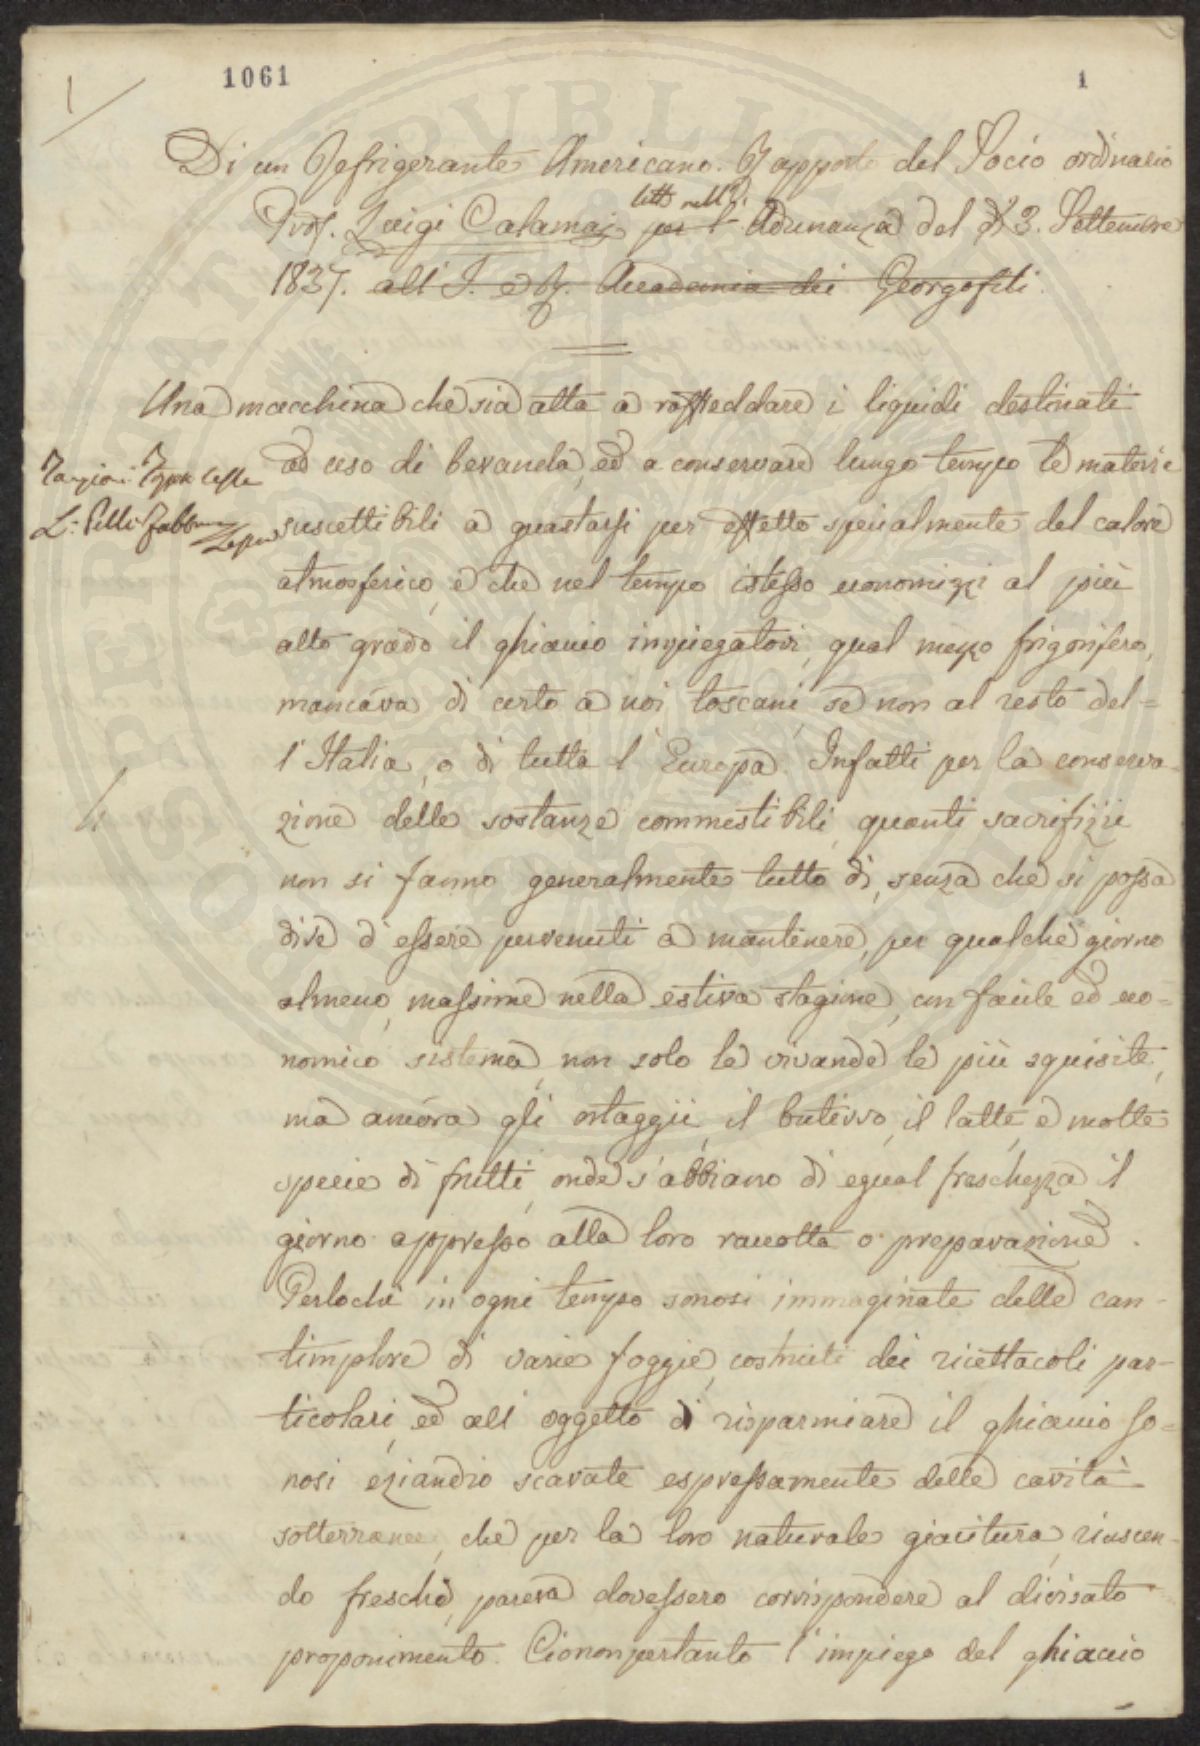 1061
1
1
Di un Refrigerante Americano. Rapporto del Socio ordinario
letto nell'
Prof. Luigi Calamaj per l' Adunanza del dì 3. Settembre
1837. all' I. e R. Accademia dei Georgofili.
Una macchina che sia atta a raffreddare i liquidi destinati
ad uso di bevanda, ed a conservare lungo tempo le materie
suscettibili a guastarsi per effetto specialmente del calore
atmosferico, e che nel tempo istesso economizzi al più
alto grado il ghiaccio impiegatovi, qual mezzo frigorifero,
mancava di certo a noi toscani, se non al resto del=
l'Italia, o di tutta l'Europa. Infatti per la conserva-
zione delle sostanze commestibili, quanti sacrifizii
non si fanno generalmente tutto dì, senza che si possa
dire d'essere pervenuti a mantenere, per qualche giorno
almeno, massime nella estiva stagione, con facile ed eco=
nomico sistema, non solo le vivande le più squisite,
ma ancora gli ortaggii, il butirro, il latte, e molte
specie di frutti, onde s'abbiano di egual freschezza il
giorno appresso alla loro raccolta o preparazione.
Perlochè in ogni tempo sonosi immaginate delle can-
timplore di varie foggie, costruiti dei ricettacoli par-
ticolari, ed all'oggetto di risparmiare il ghiaccio so=
nosi eziandio scavate espressamente delle cavità
sotterranee, che per la loro naturale giacitura, riuscen-
do fresche, pareva dovessero corrispondere al divisato
proponimento. Ciononpertanto l'impiego del ghiaccio